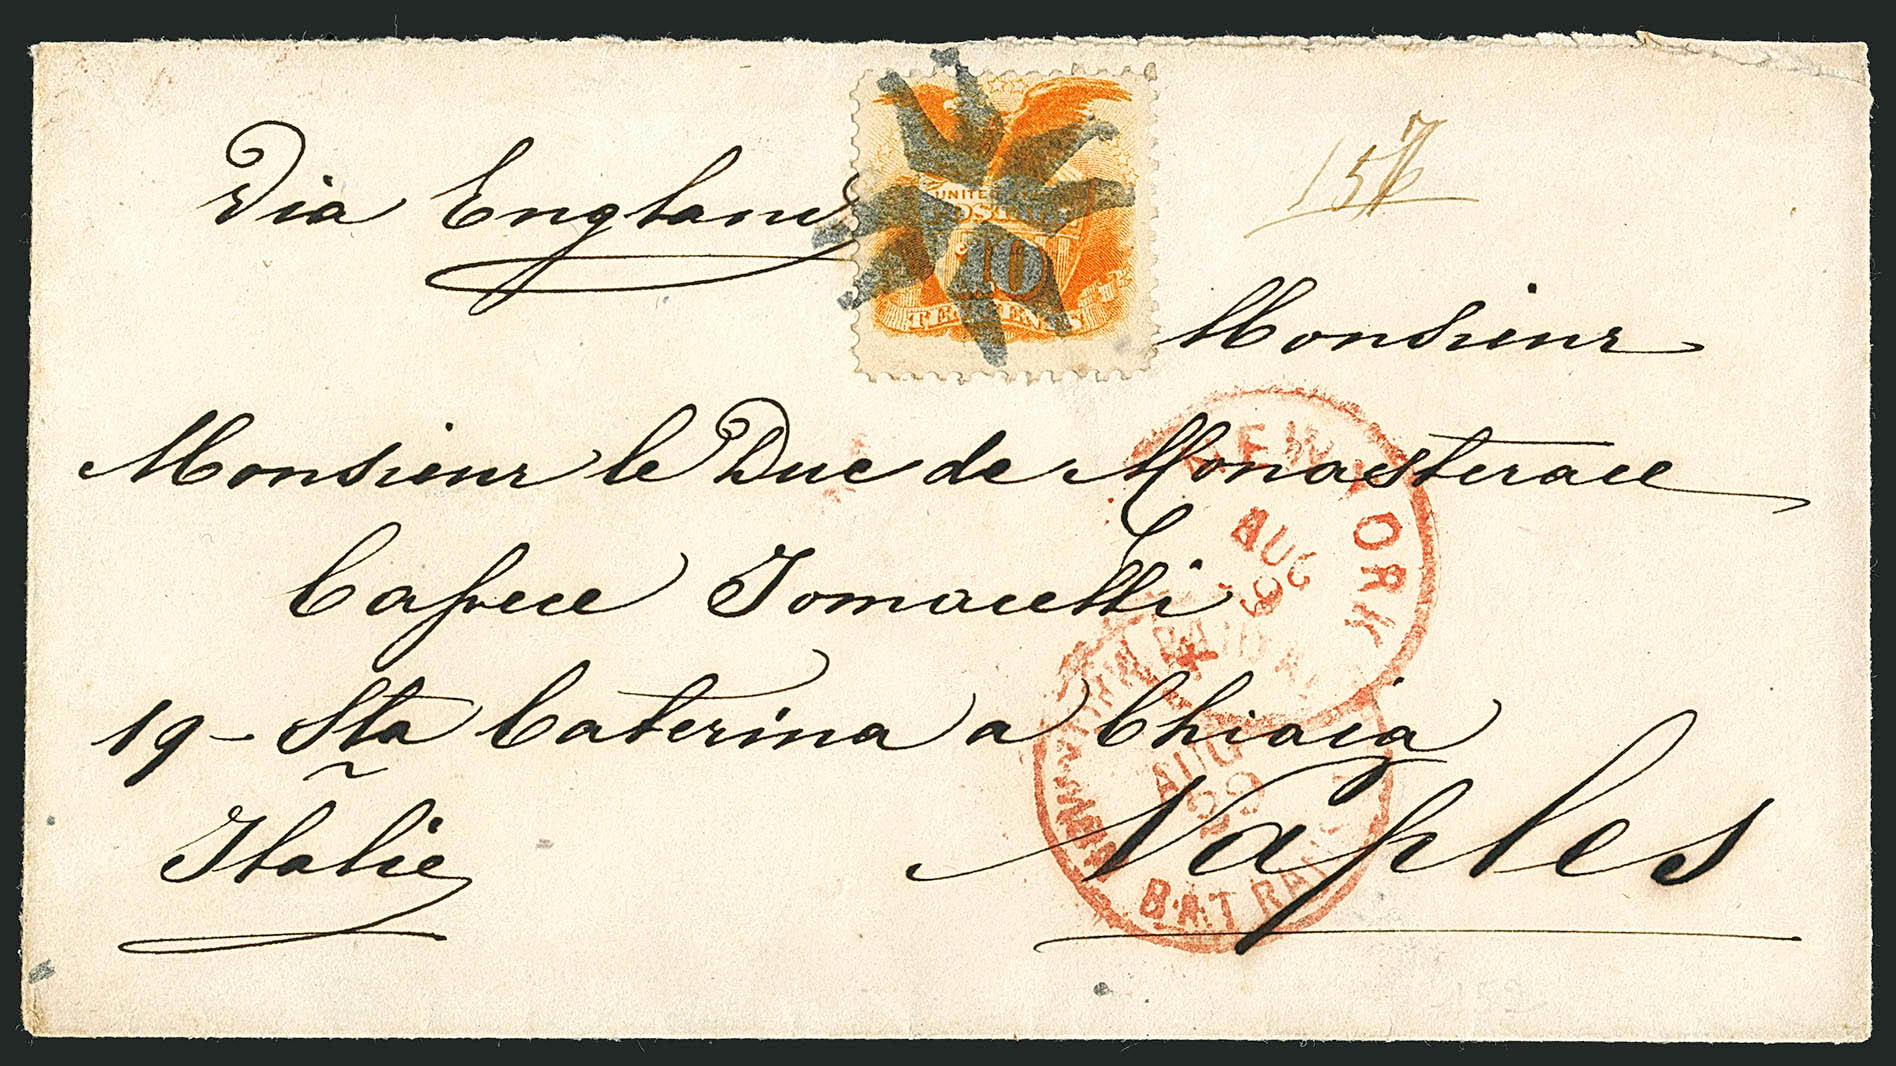 Via England
UNITED
POSTAGE
10
TEN CENTS
Monsieur
Monsieur le Duc de Monasterace
Capece Tomacelli
19 - Sta Caterina a Chiaia
Italie
Naples
NEW YORK
AUG
AUG
29